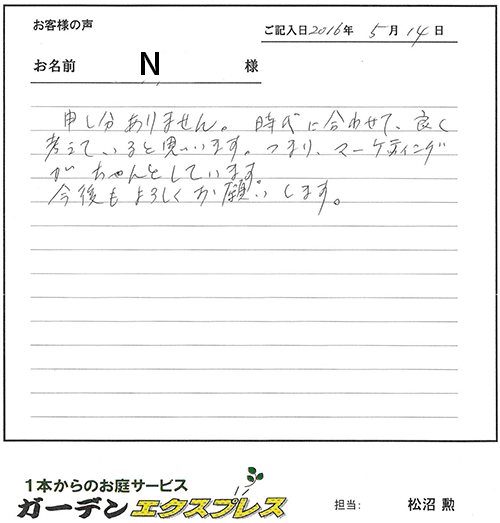 お客様の声
ご記入日2016年 5月14日
お名前 N 様
申し分ありません。時代に合わせて、良く
考えていると思います。つまり、マーケティング
がちゃんとしています。
今後もよろしくお願いします。
1本からのお庭サービス
ガーデンエクスプレス
担当: 松沼 勲